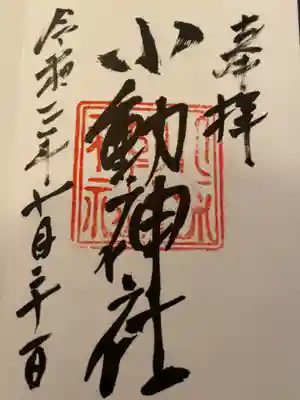 奉拝
小動神社
令和二年十月二十日